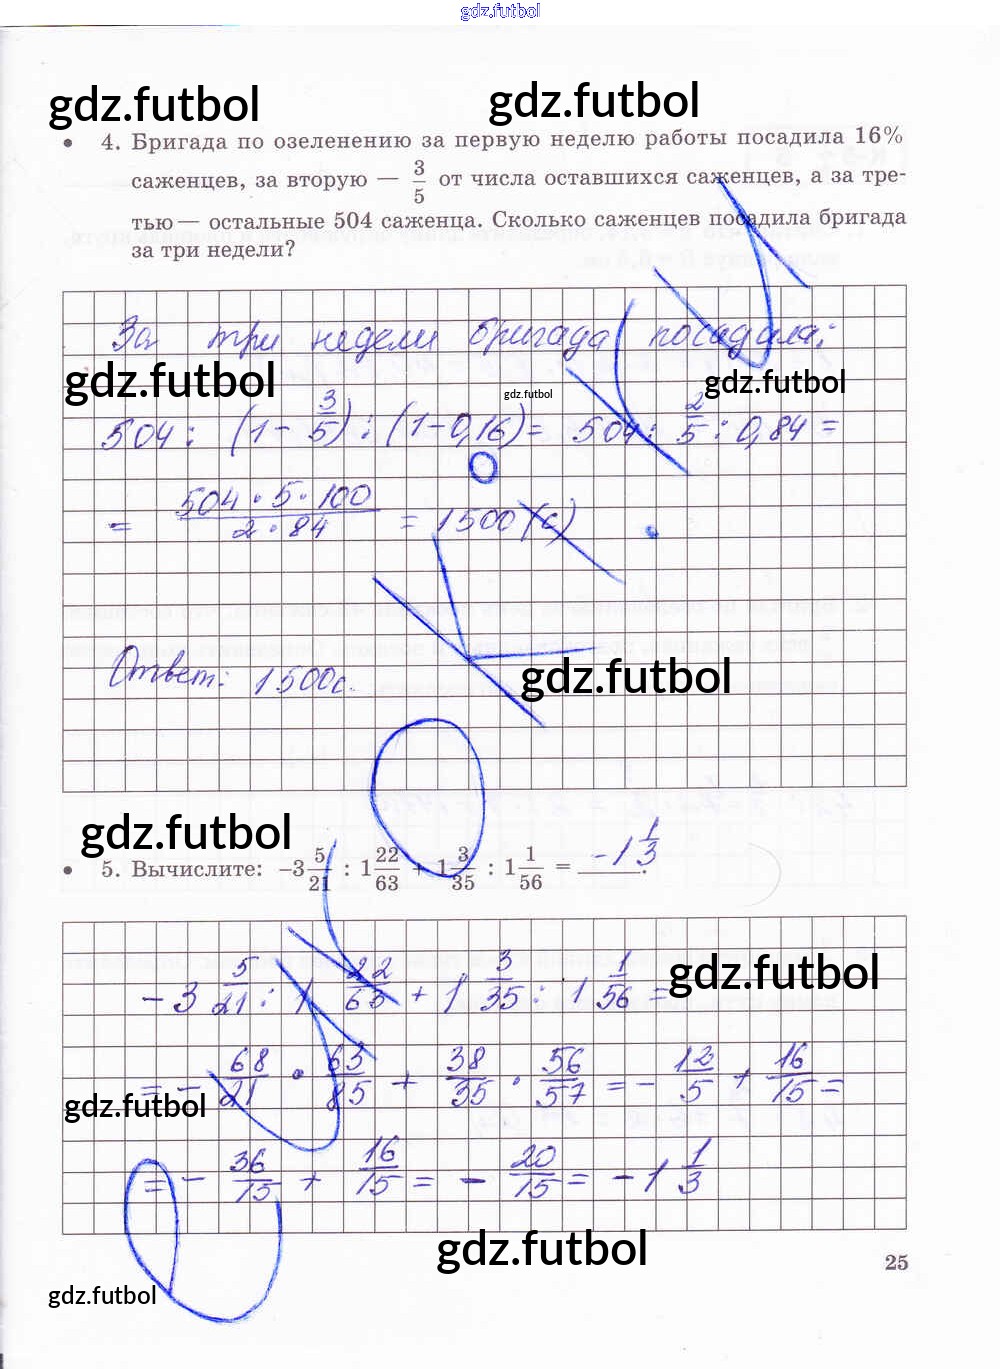 gdz.futbol
gdz.futbol
gdz.futbol
• 4. Бригада по озеленению за первую неделю работы посадила 16%
саженцев, за вторую — 3/5 от числа оставшихся саженцев, а за тре-
тью — остальные 504 саженца. Сколько саженцев посадила бригада
за три недели?
За три недели бригада посадила:
gdz.futbol
gdz.futbol
gdz.futbol
504 : (1 - 3/5) : (1 - 0,16) = 504 : 2/5 : 0,84 =
= 504 · 5 · 100 / 2 · 84 = 1500 (с)
Ответ: 1500 с.
gdz.futbol
gdz.futbol
• 5. Вычислите: -3 5/21 : 1 22/63 + 1 3/35 : 1 1/56 = -1 1/3.
-3 5/21 : 1 22/63 + 1 3/35 : 1 1/56 =
gdz.futbol
= - 68/21 · 63/85 + 38/35 · 56/57 = - 12/5 + 16/15 =
gdz.futbol
= - 36/15 + 16/15 = - 20/15 = -1 1/3
gdz.futbol
25
gdz.futbol